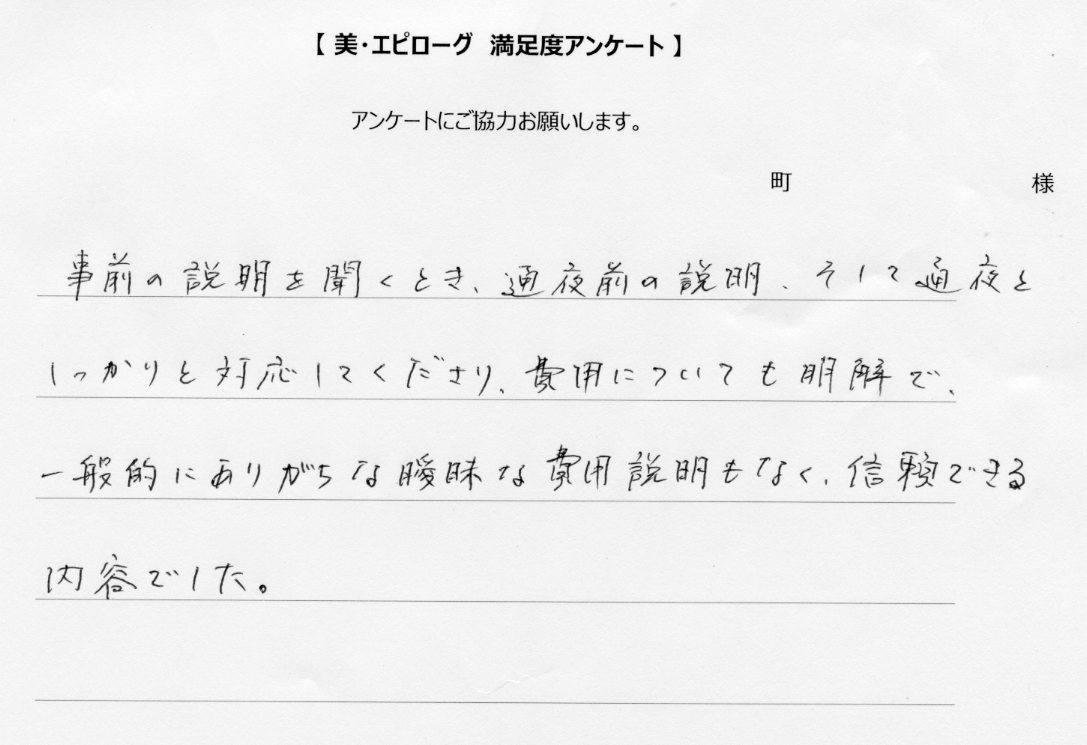 【 美・エピローグ 満足度アンケート 】
アンケートにご協力お願いします。
町 様
事前の説明を聞くとき、通夜前の説明、そして通夜と
しっかりと対応してくださり、費用についても明解で、
一般的にありがちな曖昧な費用説明もなく、信頼できる
内容でした。